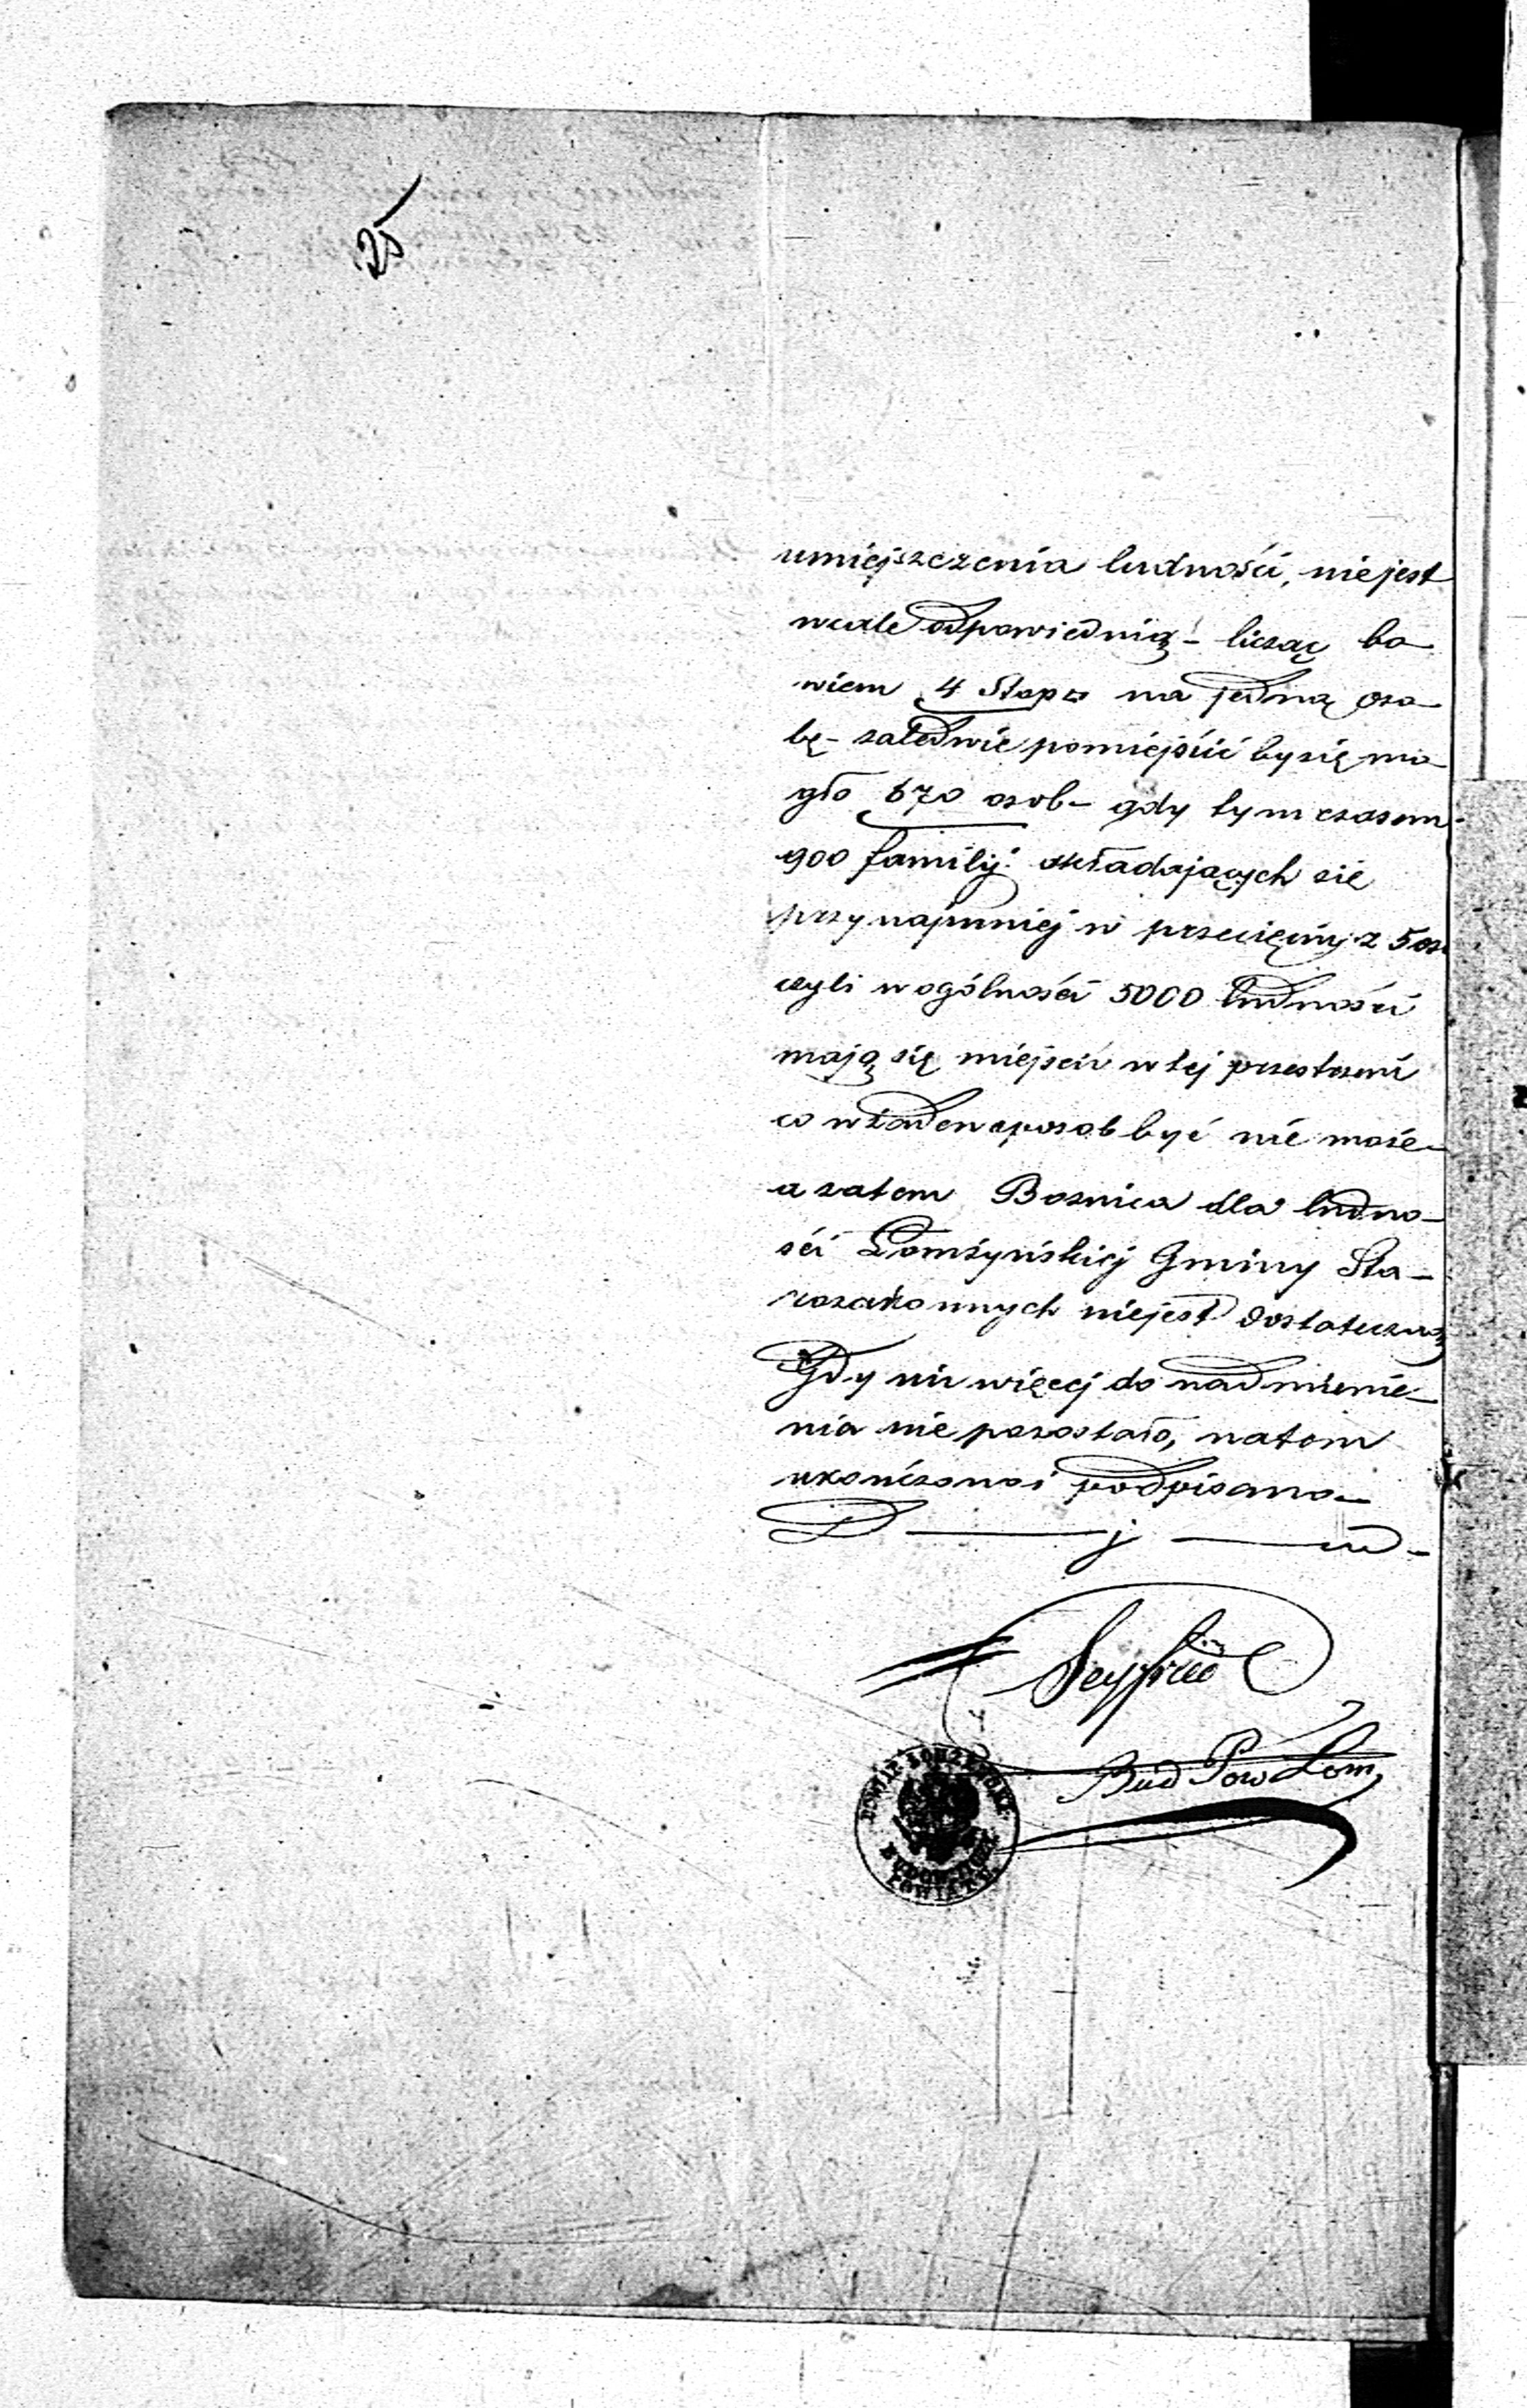 25
umiejszczenia ludności, nie jest
wcale odpowiednią – licząc bo-
wiem 4 Stop□ na jedną oso-
bę – zaledwie pomieścić by się mo-
gło 670 osob – gdy tymczasem
900 familij składających się
przynajmniej w przecięciu z 5 os
czyli w ogólności 5000 ludności
mają się mieścić w tej przestrzeni
co w żaden sposob być nie może –
a zatem Boznica dla ludno-
ści Łomżyńskiej Gminy Sta-
rozakonnych niejest dostateczną
Gdy nic więcej do nadmienie-
nia nie pozostało, na tem
ukończono i podpisano –
D — j — w —
Bud Pow Łom,
POWIAT ŁOMŻYŃSKI
BUDOWNICZY
POWIATU